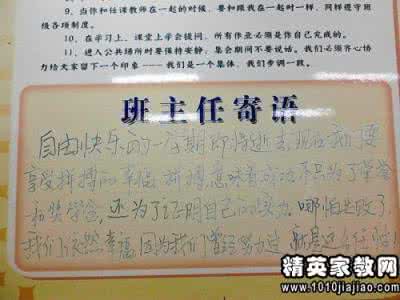 9、当你和任课教师在一起的时候，要和跟我在一起时一样，同样遵守班级各项制度。
10、在学习上，课堂上学会提问，所有作业必须是你自己完成的。
11、进入公共场所时要保持安静；集会期间不要说话。我们必须齐心协力给大家留下一个印象——我们是一个集体，我们步调一致。
班主任寄语
自由快乐的一星期即将逝去 现在我们要
享受拼搏的幸福 拼搏意味着成功 不只为了荣誉
和奖学金，还为了证明自己的 哪怕失败了
我们依然幸福 因为我们曾经努力过 就是这么任性！
精英家教网
www.1010jiajiao.com